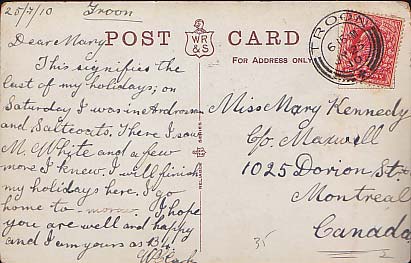 25/7/10 Troon
Dear Mary
This signifies the
last of my holidays; on
Saturday I was in Ardrossan
and Saltcoats. There I saw
M. White and a few
more I knew. I will finish
my holidays here. I go
home to-morrow. I hope
you are well and happy
and I am yours as B4
Wm
POST CARD
WR
&S
FOR ADDRESS ONLY.
RELIABLE SERIES
TROON
Miss Mary Kennedy
C/o. Maxwell
1025 Dorion St.
Montreal
Canada
35